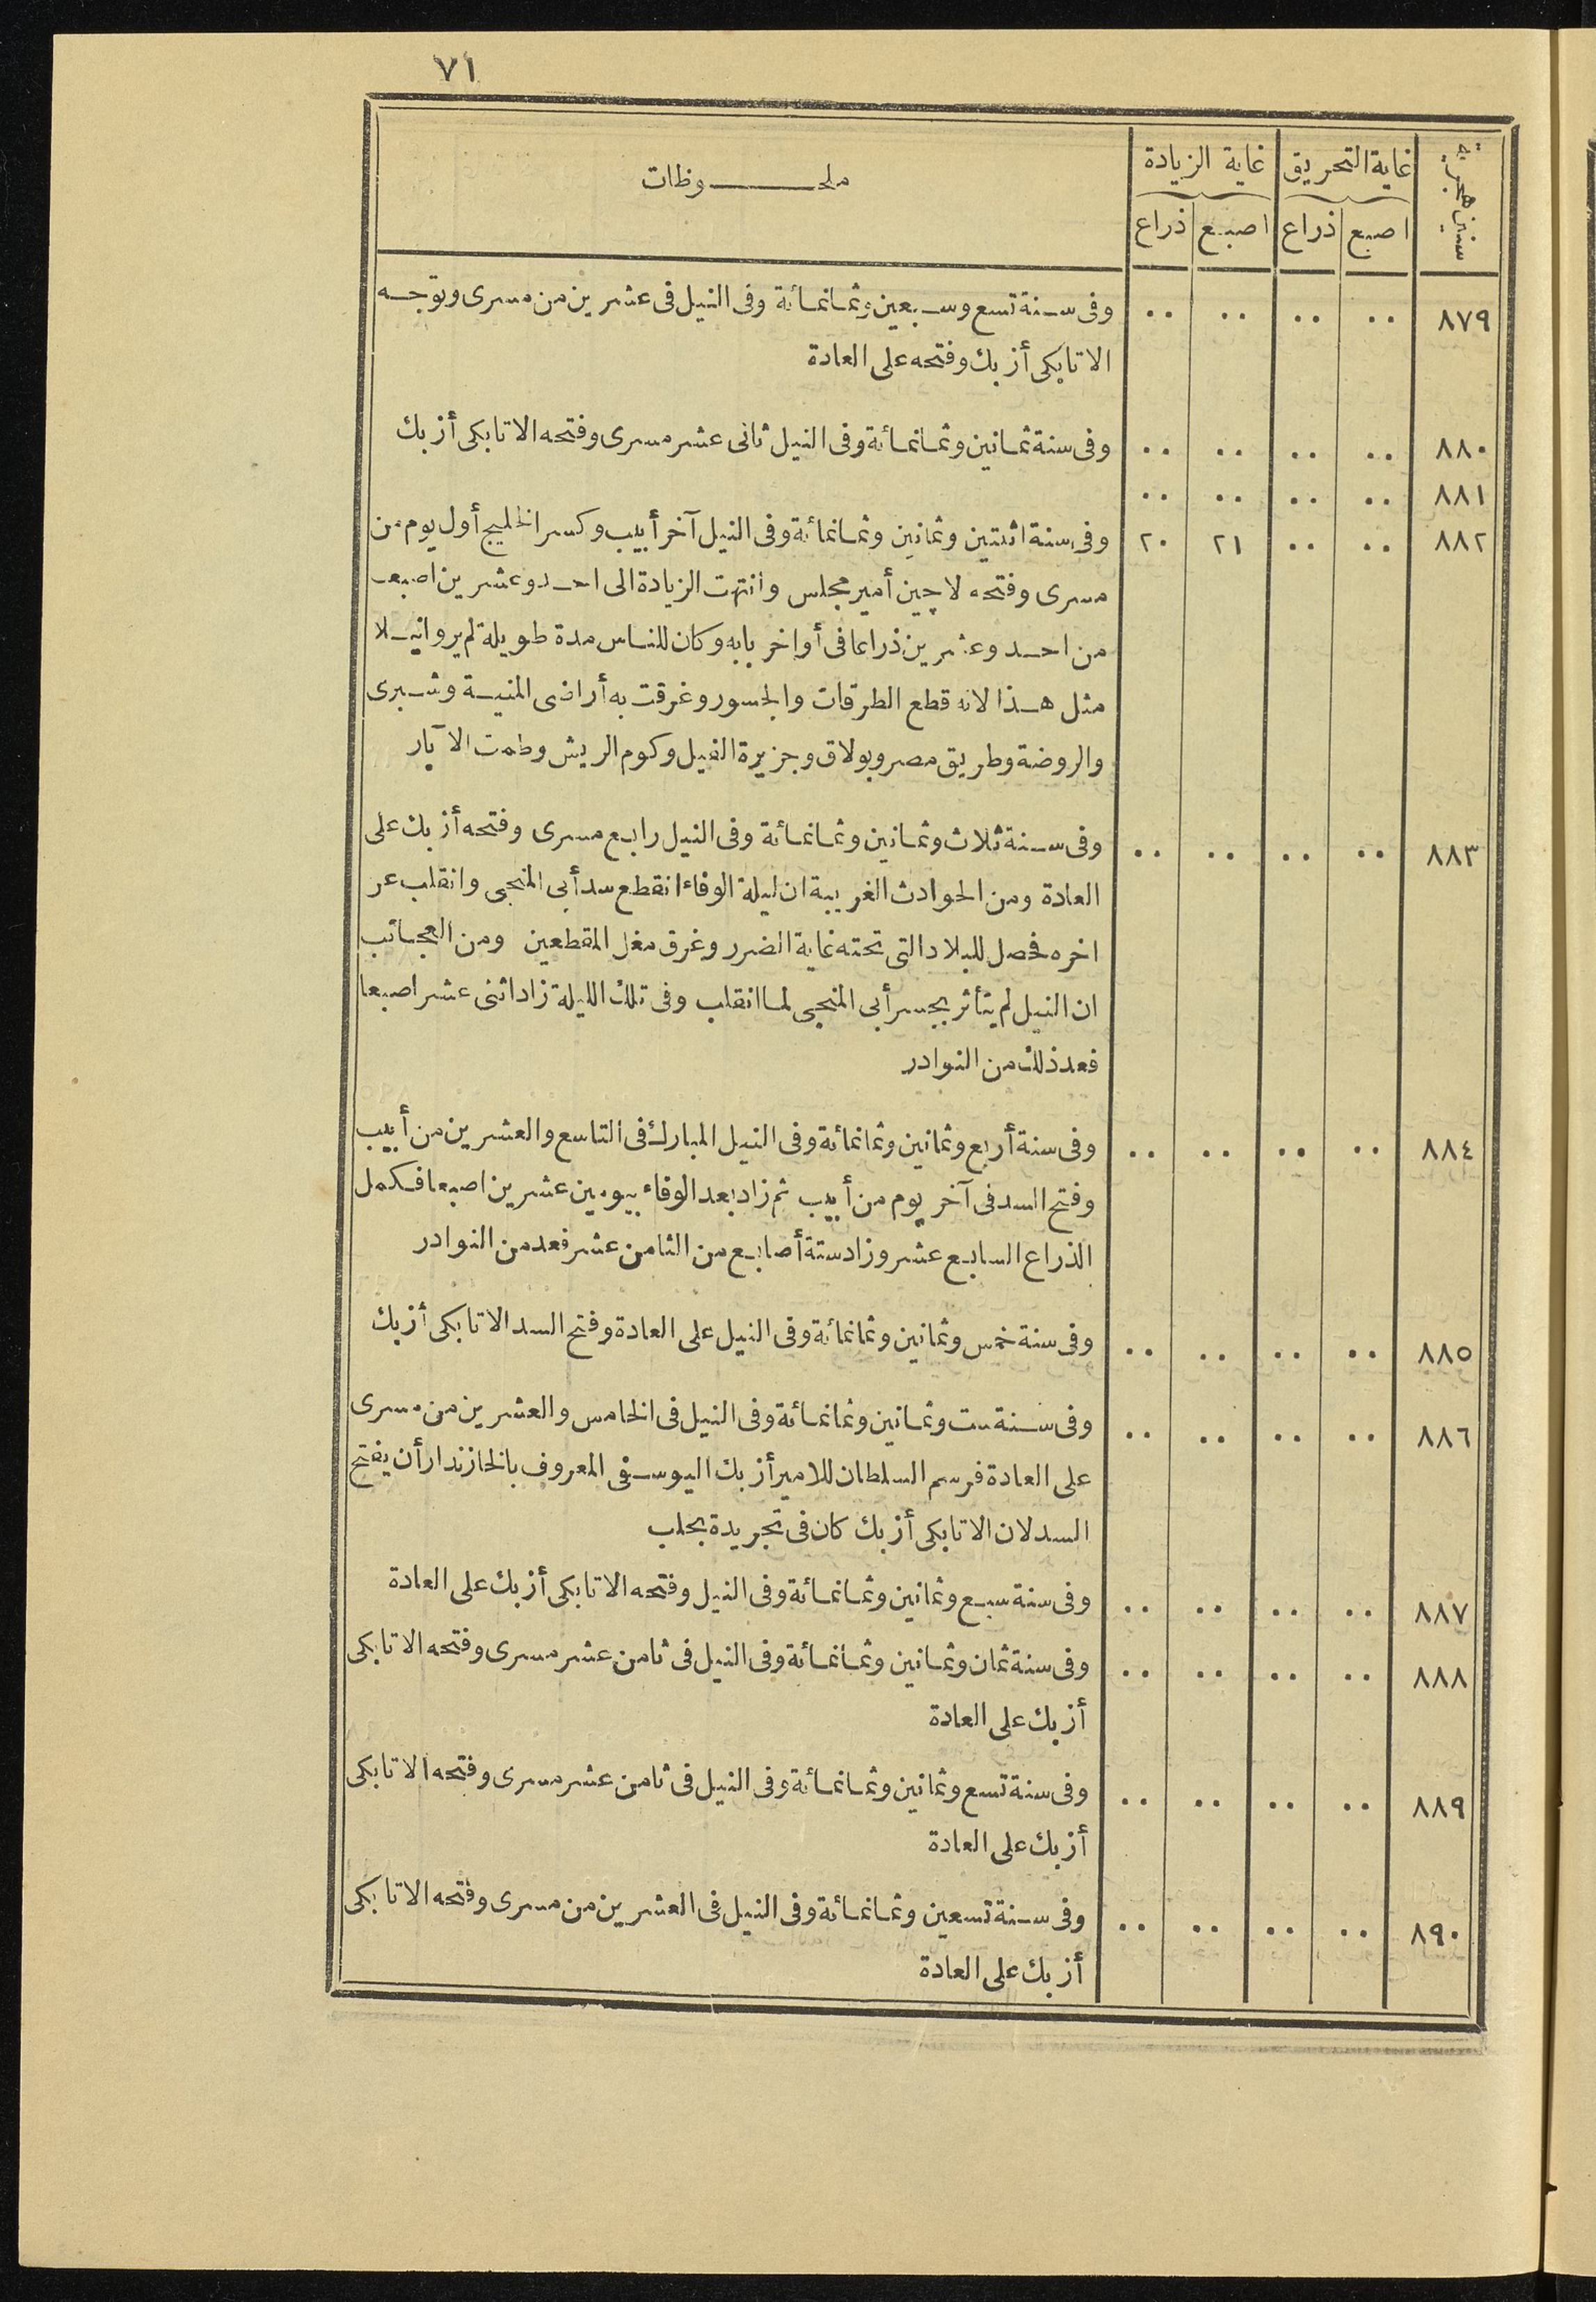 ٧١
سنين هجرية | غاية التحريق | غاية الزيادة | ملحـــوظات
اصبع | ذراع | اصبع | ذراع
٨٧٩ | ·· | ·· | ·· | ·· | وفى سنة تسع وسبعين وثمانمائة وفى النيل فى عشرين من مسرى وتوجه
الاتابكى أزبك وفتحه على العادة
٨٨٠ | ·· | ·· | ·· | ·· | وفى سنة ثمانين وثمانمائة وفى النيل ثانى عشر مسرى وفتحه الاتابكى أزبك
٨٨١ | ·· | ·· | ·· | ··
٨٨٢ | ·· | ·· | ٢١ | ٢٠ | وفى سنة اثنتين وثمانين وثمانمائة وفى النيل آخر أبيب وكسر الخليج أول يوم من
مسرى وفتحه لاچين أمير مجلس وانتهت الزيادة الى احد وعشرين اصبعا
من احد وعشرين ذراعا فى أواخر بابه وكان للناس مدة طويلة لم يروا نيلا
مثل هذا لانه قطع الطرقات والجسور وغرقت به أراضى المنية وشبرى
والروضة وطريق مصر وبولاق وجزيرة الفيل وكوم الريش وطمت الآبار
٨٨٣ | ·· | ·· | ·· | ·· | وفى سنة ثلاث وثمانين وثمانمائة وفى النيل رابع مسرى وفتحه أزبك على
العادة ومن الحوادث الغريبة ان ليلة الوفاء انقطع سد أبى المنجى وانقلب عن
اخره فحصل للبلاد التى تحته غاية الضرر وغرق مغل المقطعين ومن العجائب
ان النيل لم يتأثر بجسر أبى المنجى لما انقلب وفى تلك الليلة زاد اثنى عشر اصبعا
فعد ذلك من النوادر
٨٨٤ | ·· | ·· | ·· | ·· | وفى سنة أربع وثمانين وثمانمائة وفى النيل المبارك فى التاسع والعشرين من أبيب
وفتح السد فى آخر يوم من أبيب ثم زاد بعد الوفاء بيومين عشرين اصبعا فكمل
الذراع السابع عشر وزاد ستة أصابع من الثامن عشر فعد من النوادر
٨٨٥ | ·· | ·· | ·· | ·· | وفى سنة خمس وثمانين وثمانمائة وفى النيل على العادة وفتح السد الاتابكى أزبك
٨٨٦ | ·· | ·· | ·· | ·· | وفى سنة ست وثمانين وثمانمائة وفى النيل فى الخامس والعشرين من مسرى
على العادة فرسم السلطان للامير أزبك اليوسفى المعروف بالخازندار أن يفتح
السد لان الاتابكى أزبك كان فى تجريدة بحلب
٨٨٧ | ·· | ·· | ·· | ·· | وفى سنة سبع وثمانين وثمانمائة وفى النيل وفتحه الاتابكى أزبك على العادة
٨٨٨ | ·· | ·· | ·· | ·· | وفى سنة ثمان وثمانين وثمانمائة وفى النيل فى ثامن عشر مسرى وفتحه الاتابكى
أزبك على العادة
٨٨٩ | ·· | ·· | ·· | ·· | وفى سنة تسع وثمانين وثمانمائة وفى النيل فى ثامن عشر مسرى وفتحه الاتابكى
أزبك على العادة
٨٩٠ | ·· | ·· | ·· | ·· | وفى سنة تسعين وثمانمائة وفى النيل فى العشرين من مسرى وفتحه الاتابكى
أزبك على العادة